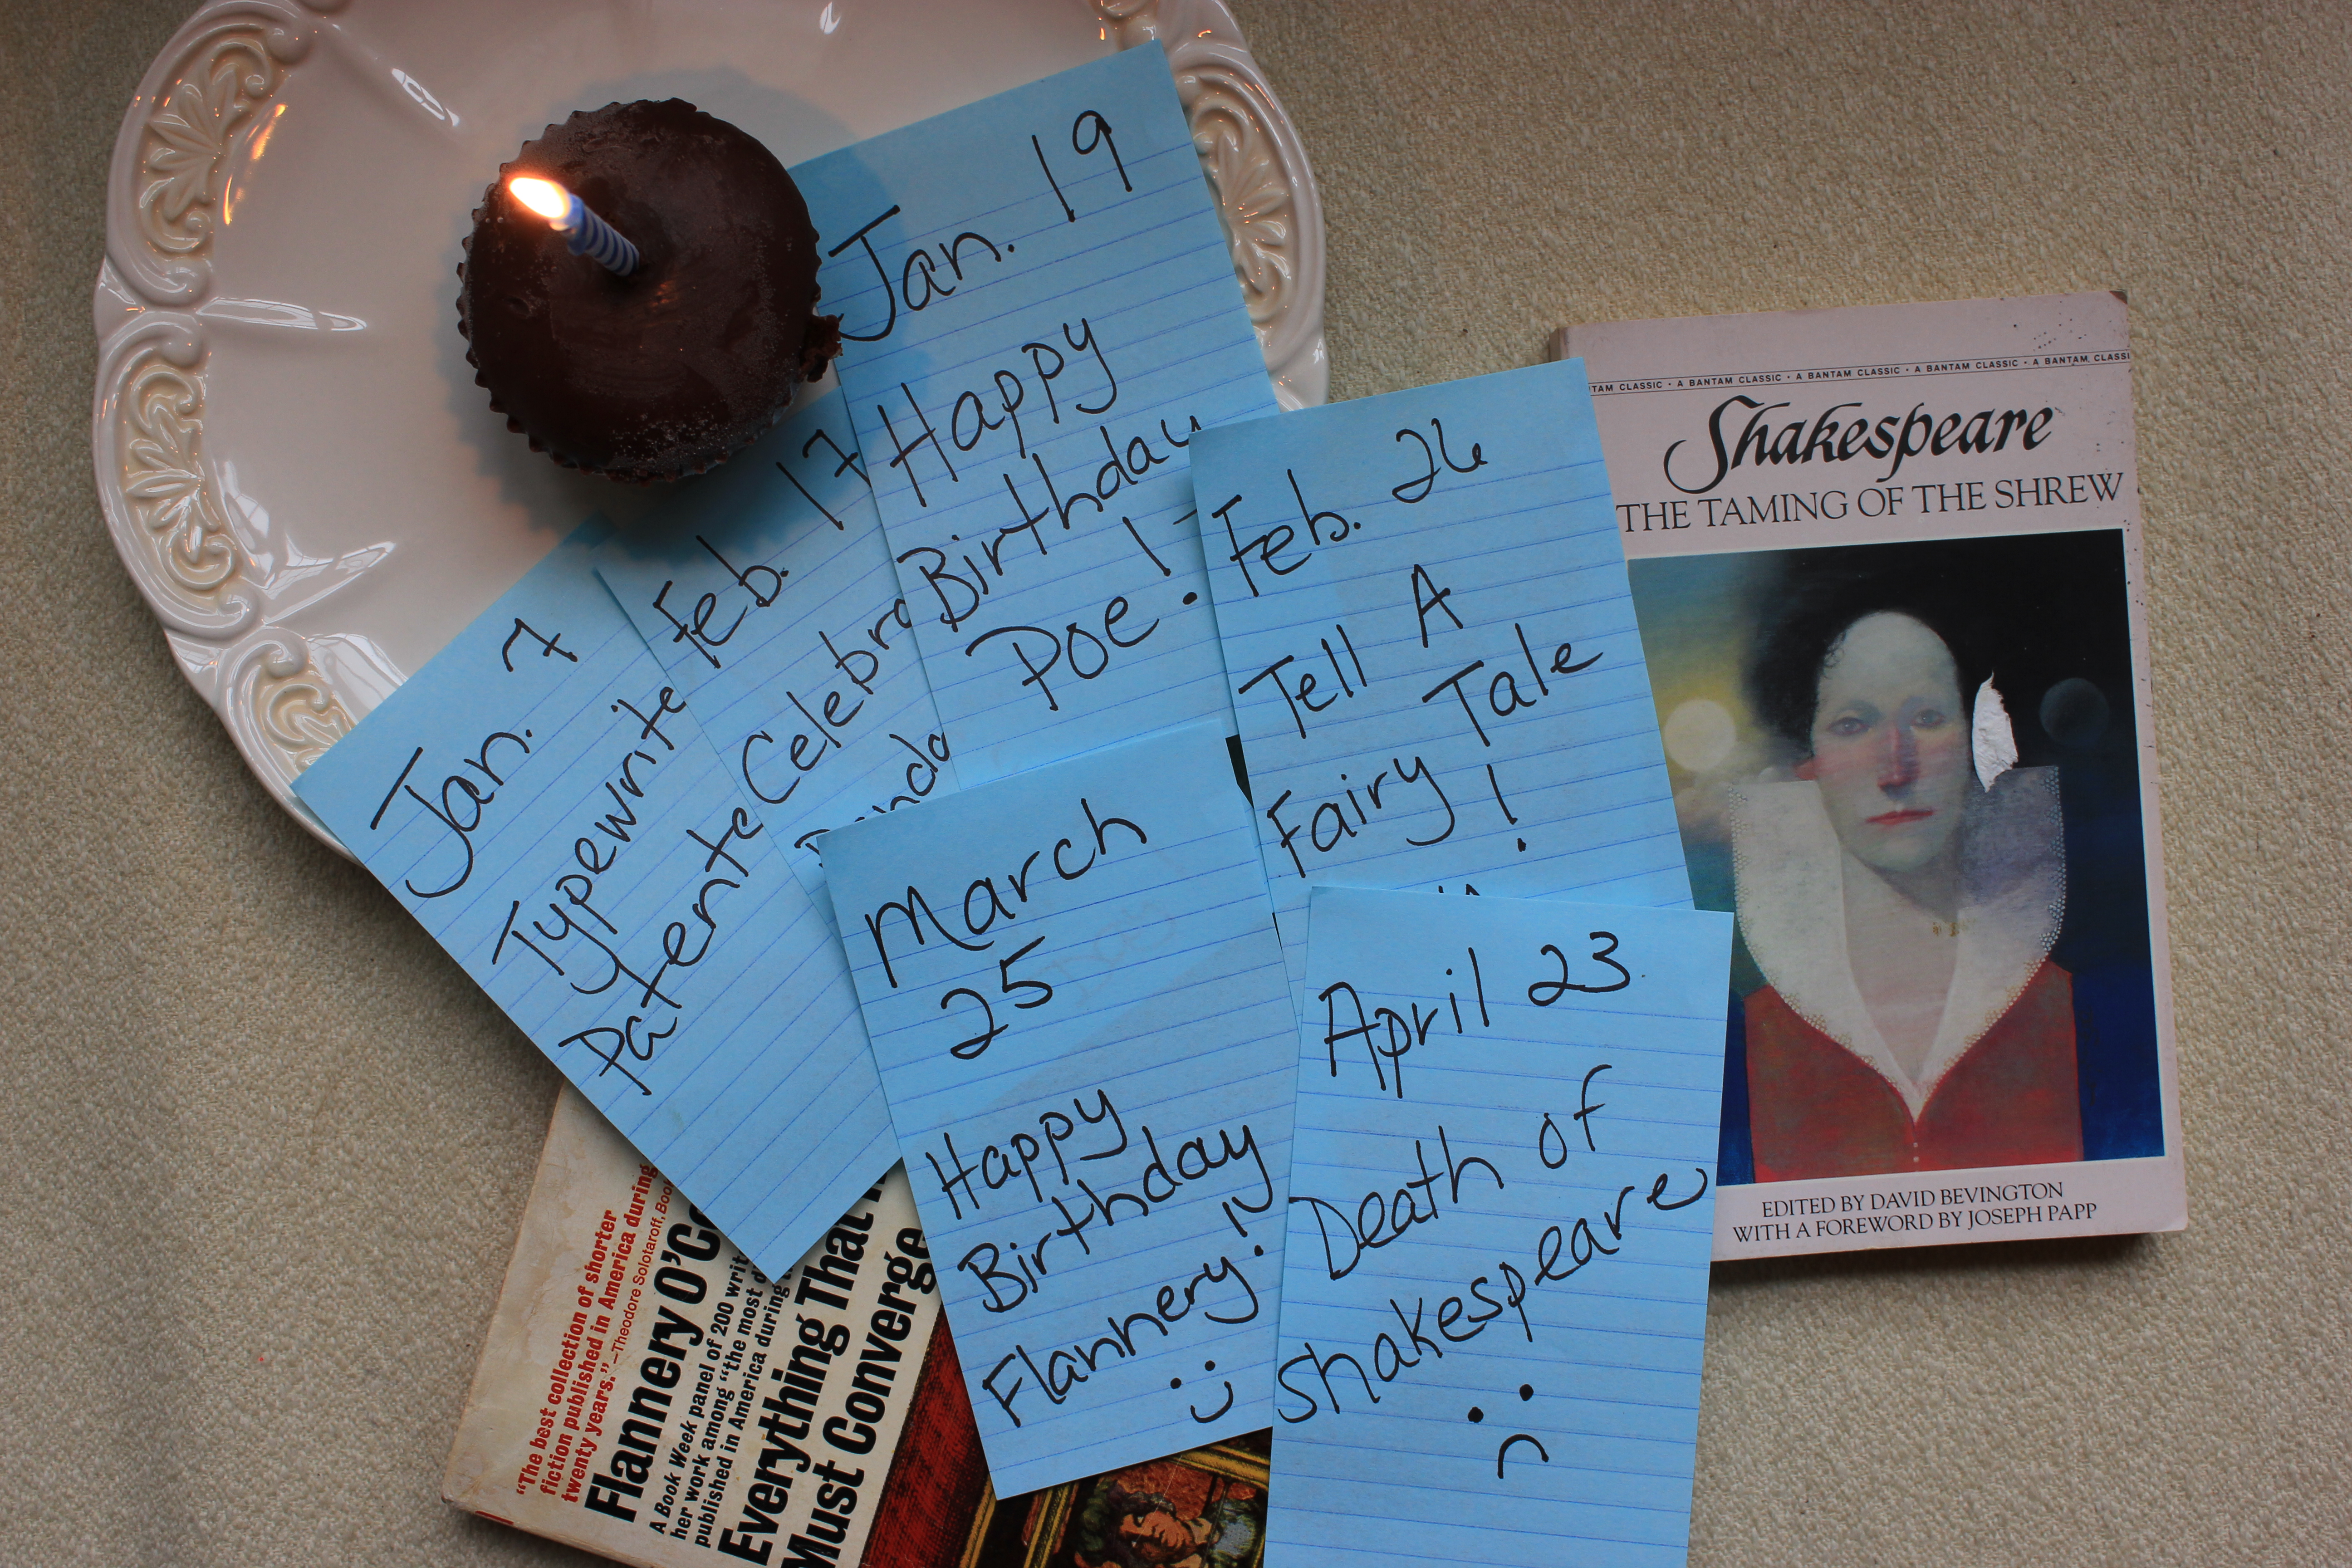 Jan. 19
Happy
Birthday
Poe!
Jan. 7
Typewrite
Patente
Feb. 17
Celebra
Feb. 26
Tell A
Fairy Tale
!
March
25
Happy
Birthday
Flannery!
April 23
Death of
Shakespeare
TAM CLASSIC • A BANTAM CLASSIC • A BANTAM CLASSIC • A BANTAM CLASSIC • A BANTAM CLASSI
Shakespeare
THE TAMING OF THE SHREW
EDITED BY DAVID BEVINGTON
WITH A FOREWORD BY JOSEPH PAPP
"The best collection of shorter
fiction published in America during
twenty years."—Theodore Solotaroff, Book
Flannery O'Co
A Book Week panel of 200 writ
her work among "the most d
published in America during
Everything That
Must Converge